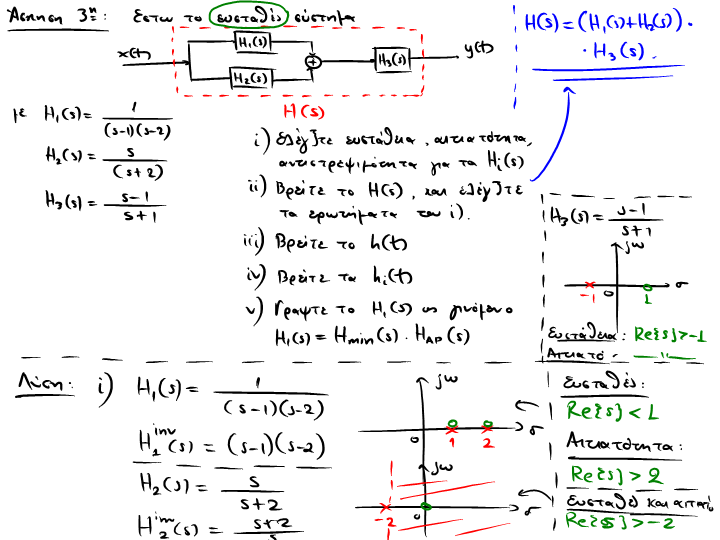 Άσκηση 3η: Έστω το ευσταθές σύστημα
x(t) H₁(s) H₂(s) + H₃(s) y(t)
H(s)
H(s) = (H₁(s)+H₂(s)) ·
· H₃(s).
με H₁(s) = 1/((s-1)(s-2))
H₂(s) = s/(s+2)
H₃(s) = (s-1)/(s+1)
i) Ελέγξτε ευστάθεια, αιτιατότητα,
αντιστρεψιμότητα για τα Hᵢ(s)
ii) Βρείτε το H(s), και ελέγξτε
τα ερωτήματα του i).
iii) Βρείτε το h(t)
iv) Βρείτε τα hᵢ(t)
v) Γράψτε το H₁(s) ως γινόμενο
H₁(s) = Hmin(s) · HAP(s)
H₃(s) = (s-1)/(s+1)
jω
-1 0 1 σ
Ευστάθεια: Re{s}>-1
Αιτιατό - —〃—
Λύση: i) H₁(s) = 1/((s-1)(s-2))
H₁ⁱⁿᵛ(s) = (s-1)(s-2)
jω
0 1 2 σ
Ευσταθές:
Re{s} < 1
Αιτιατότητα:
Re{s} > 2
H₂(s) = s/(s+2)
H₂ⁱⁿᵛ(s) = (s+2)/s
jω
-2 0 σ
Ευσταθές και αιτιατό
Re{s} > -2